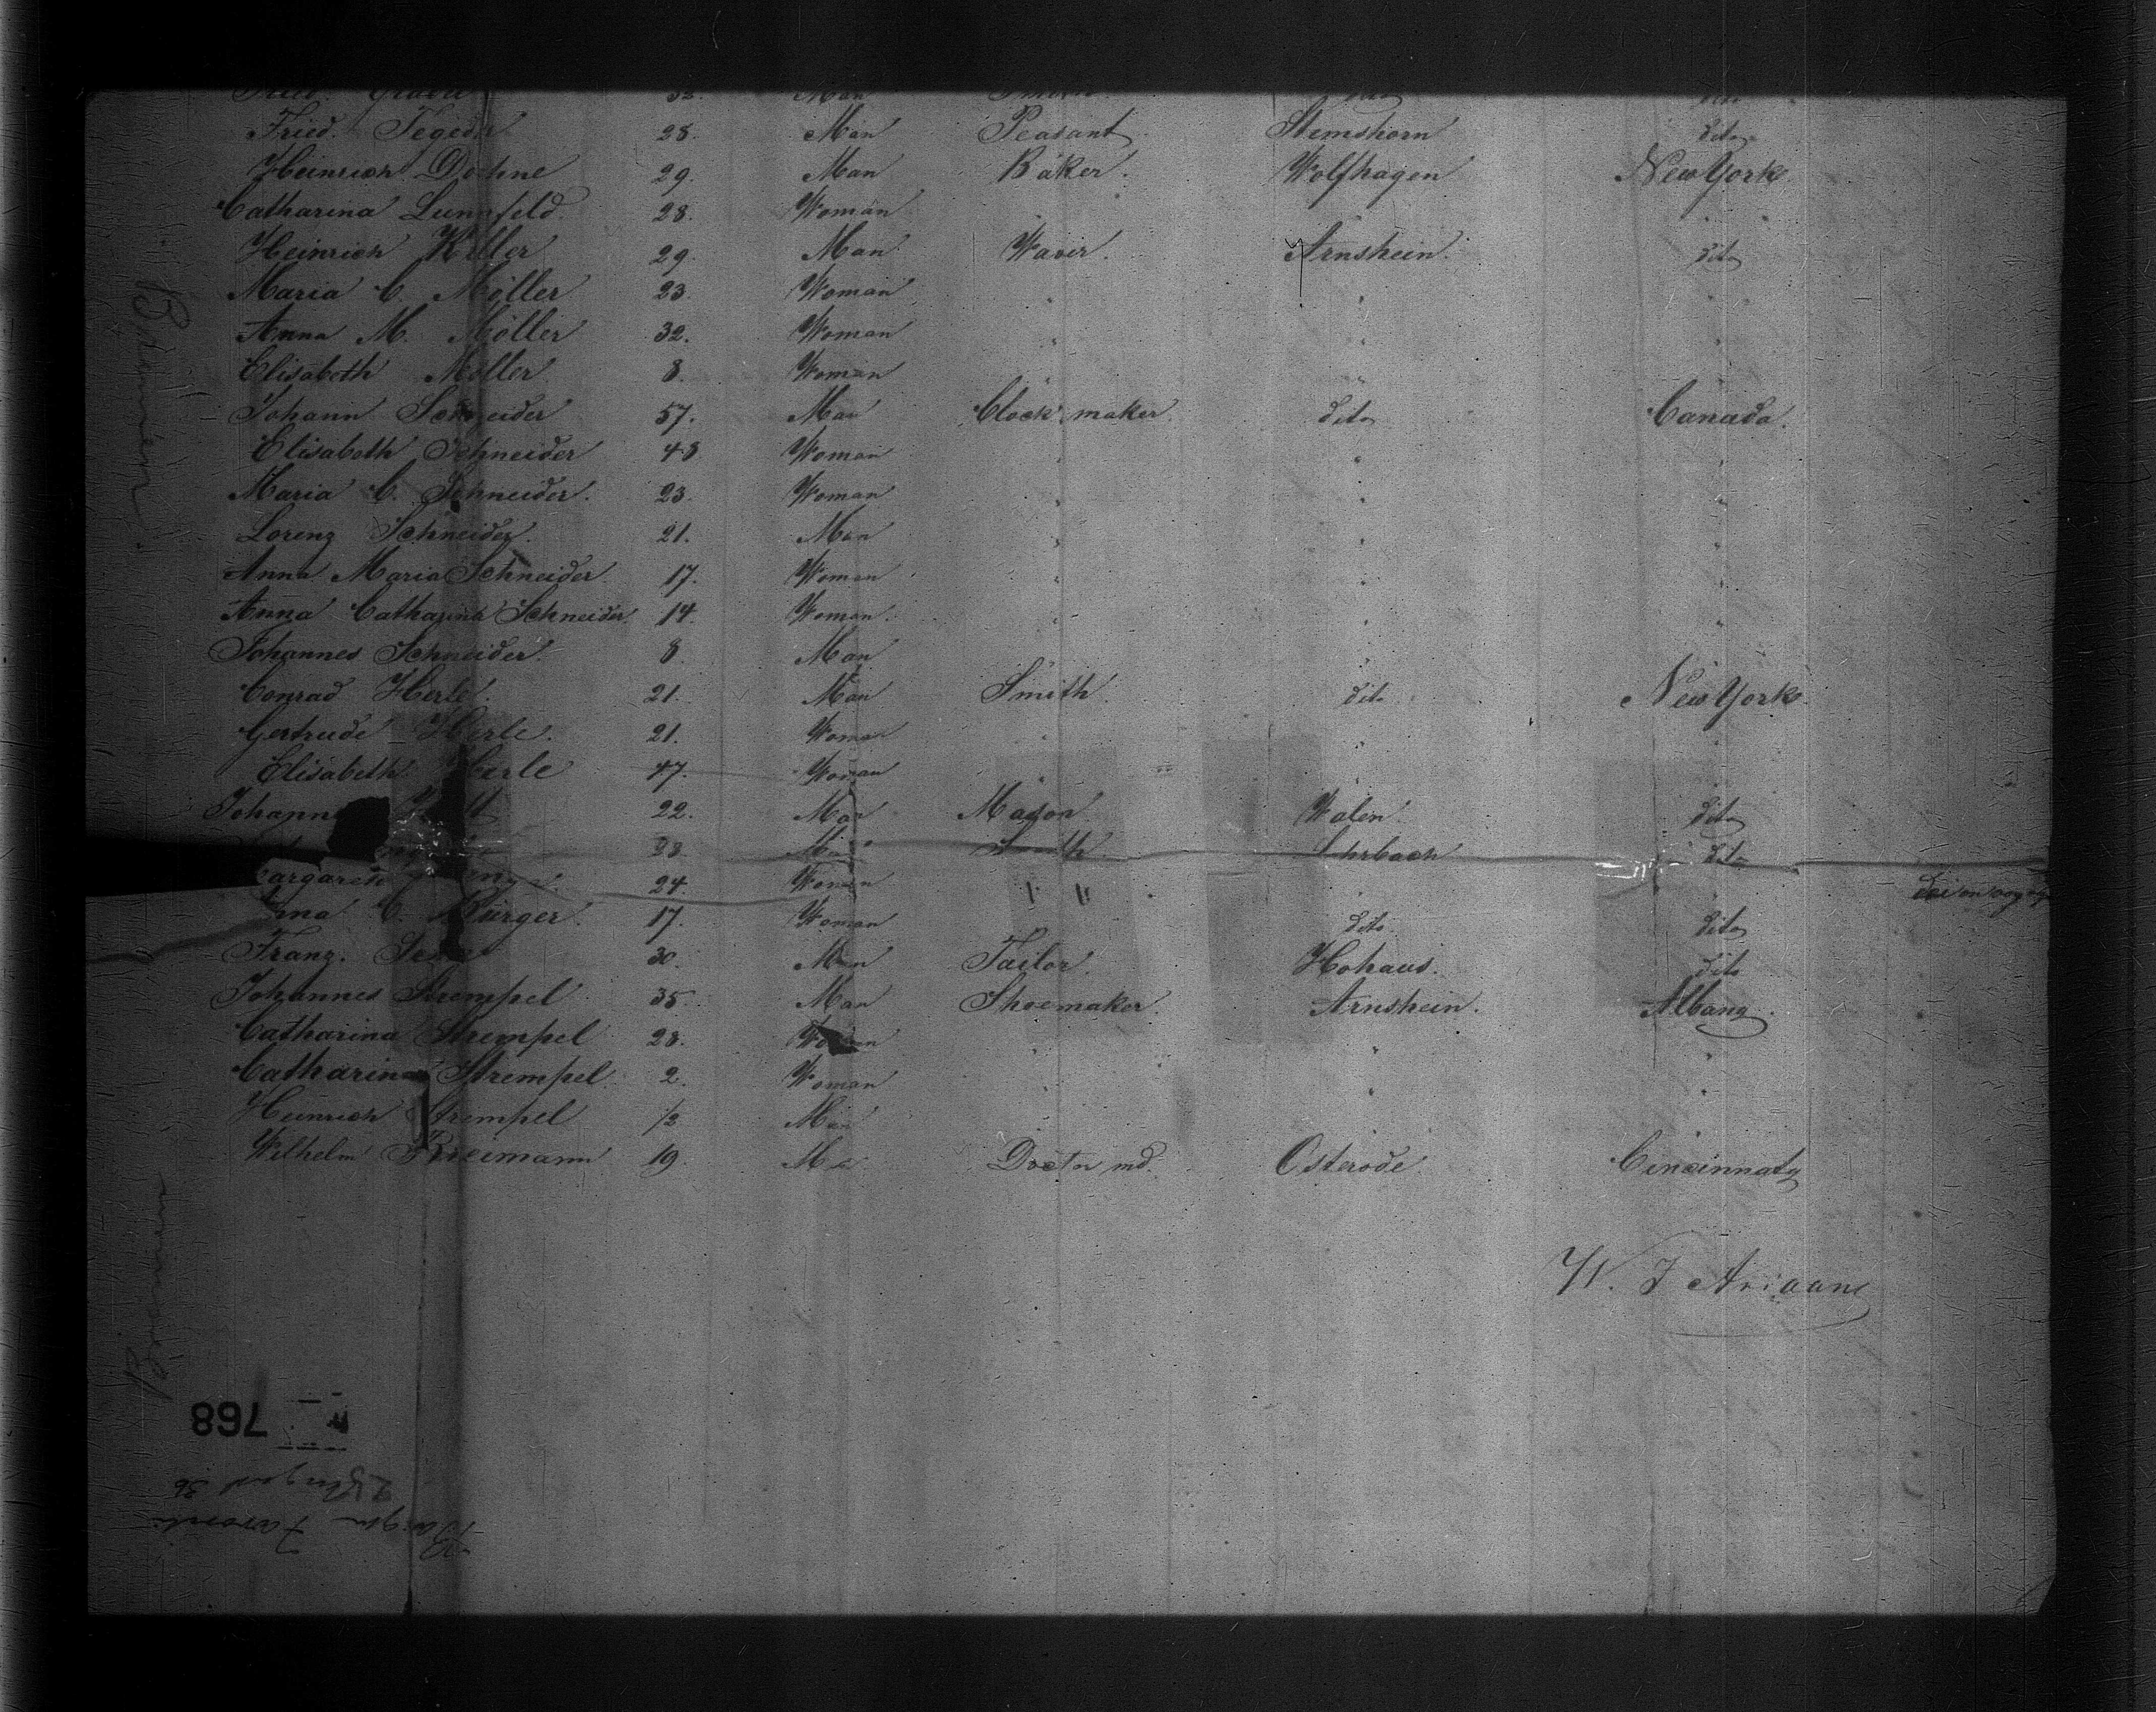 Fried. 32. Man dito dito
Fried. Tegeder 28. Man Peasant Stemshorn dito
Heinrich Döhne 29. Man Baker. Wolfhagen New York
Catharina Lunnfeld 28. Woman " " "
Heinrich Keller 29. Man Waver. Arnshein. dito
Maria C. Möller 23. Woman " " "
Anna M. Möller 32. Woman " " "
Elisabeth Möller 8. Woman " " "
Johann Schneider 57. Man Clock maker dito Canada.
Elisabeth Schneider 48 Woman " " "
Maria C. Schneider. 23. Woman " " "
Lorenz Schneider. 21. Man " " "
Anna Maria Schneider 17. Woman " " "
Anna Catharina Schneider 14. Woman. " " "
Johannes Schneider. 8. Man " " "
Conrad Herle. 21. Man Smith dito New York.
Gertrude Herle. 21. Woman " " "
Elisabeth Herle 47. Woman " "
22. Man Mason Walen. dito
28. Man Smith. Ohrbach dito
Margareth 24. Woman " "
C. Bürger. 17. Woman dito dito
Franz. 30. Man Tailor. Hohaus. dito
Johannes Strempel 35. Man Shoemaker. Arnshein. Albany.
Catharina Strempel 28. Woman " " "
Catharina Strempel. 2. Woman " " "
Heinrich Strempel 1/2 Man
Wilhelm Kreimann 19. Man Doctor md. Osterode Cincinnaty
W. J Ariaans
Bremen
768